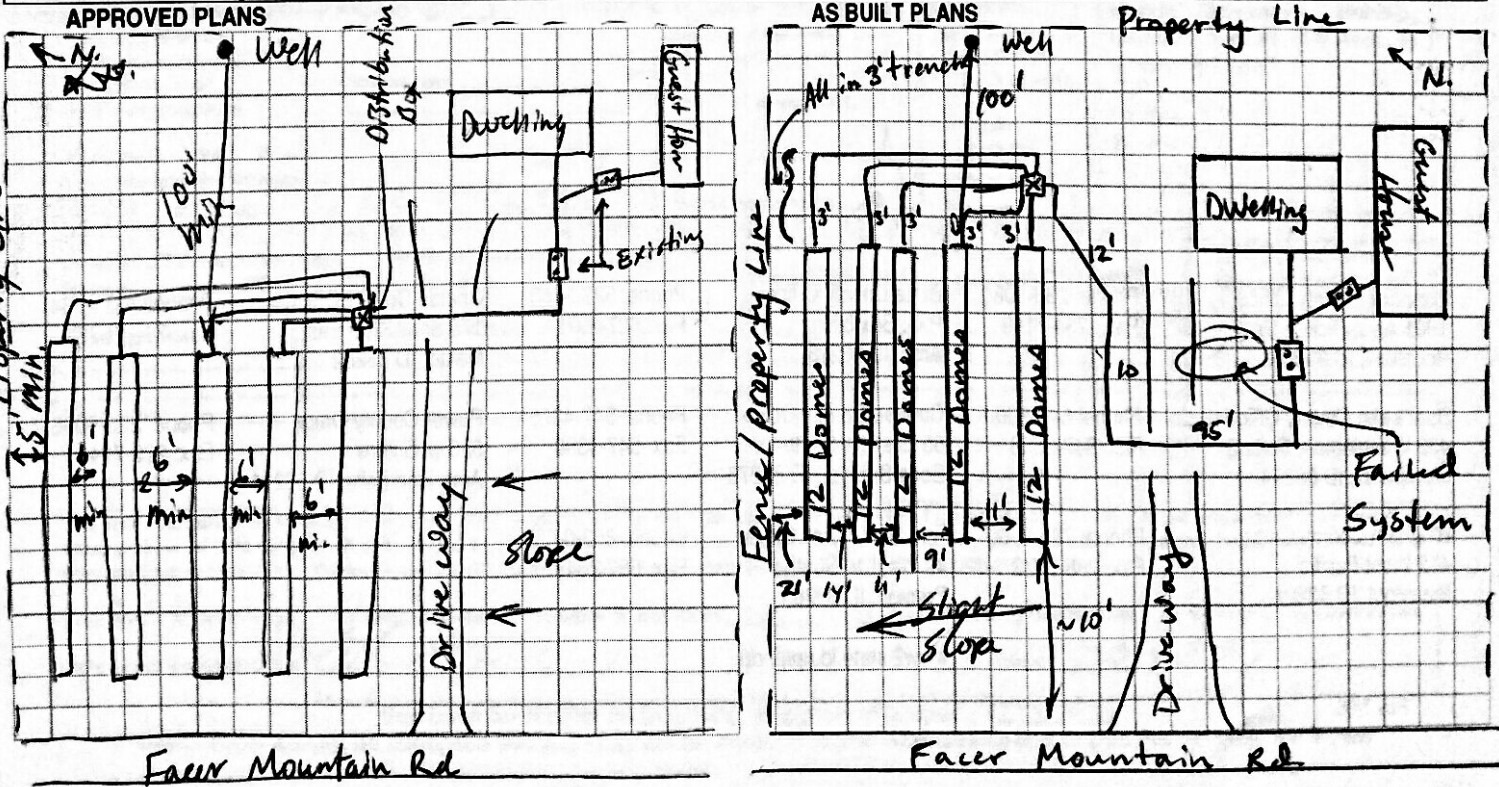 APPROVED PLANS
N.
Well
Distribution
Box
Dwelling
Guest Hou
100'
min
Existing
Property Line
15' Min
6'
min
6'
Min
6'
Min
6'
min
Driveway
Slope
Facer Mountain Rd
AS BUILT PLANS
Property Line
Well
N.
All in 3' trench
100'
Guest
House
Dwelling
3'
3'
3'
3'
3'
12'
10
95'
Fence/property Line
12 Domes
12 Domes
12 Domes
12 Domes
12 Domes
Failed
System
21'
14'
11'
9'
11'
Slight
Slope
~10'
Driveway
Facer Mountain Rd